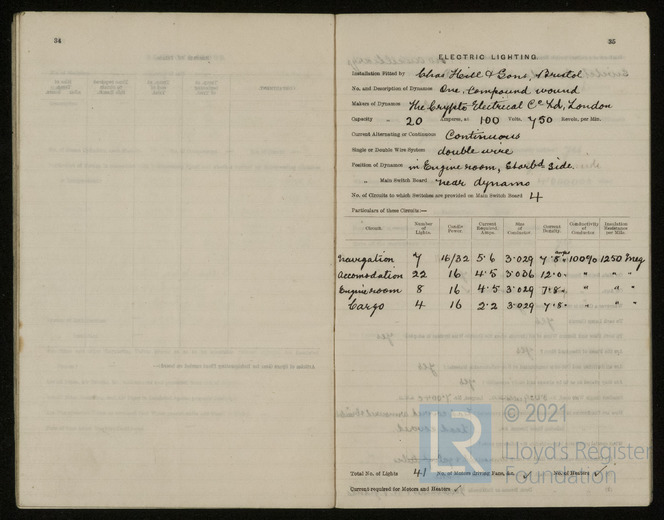 34
35
ELECTRIC LIGHTING
Installation Fitted by Chas Hill & Sons, Bristol
No. and Description of Dynamos One, Compound wound
Makers of Dynamos The Crypto Electrical Co Ld, London
Capacity 20 Amperes, at 100 Volts, 750 Revols. per Min.
Current Alternating or Continuous Continuous
Single or Double Wire System double wire
Position of Dynamos in Engine room, Starbd Side.
„ Main Switch Board near dynamo
No. of Circuits to which Switches are provided on Main Switch Board 4
Particulars of these Circuits:—
Circuit. Number of Lights. Candle Power. Current Required. Amps. Size of Conductor. Current Density. Conductivity of Conductor. Insulation Resistance per Mile.
Navigation 7 16/32 5.6 3.029 7.8 amps 100% 1250 meg
Accomodation 22 16 4.5 3.036 12.0 " " " "
Engine room 8 16 4.5 3.029 7.8 " " " "
Cargo 4 16 2.2 3.029 7.8 " " " "
Total No. of Lights 41 No. of Motors driving Fans, &c. ✓ No. of Heaters ✓
Current required for Motors and Heaters ✓
© 2021
LR
Lloyd's Register
Foundation